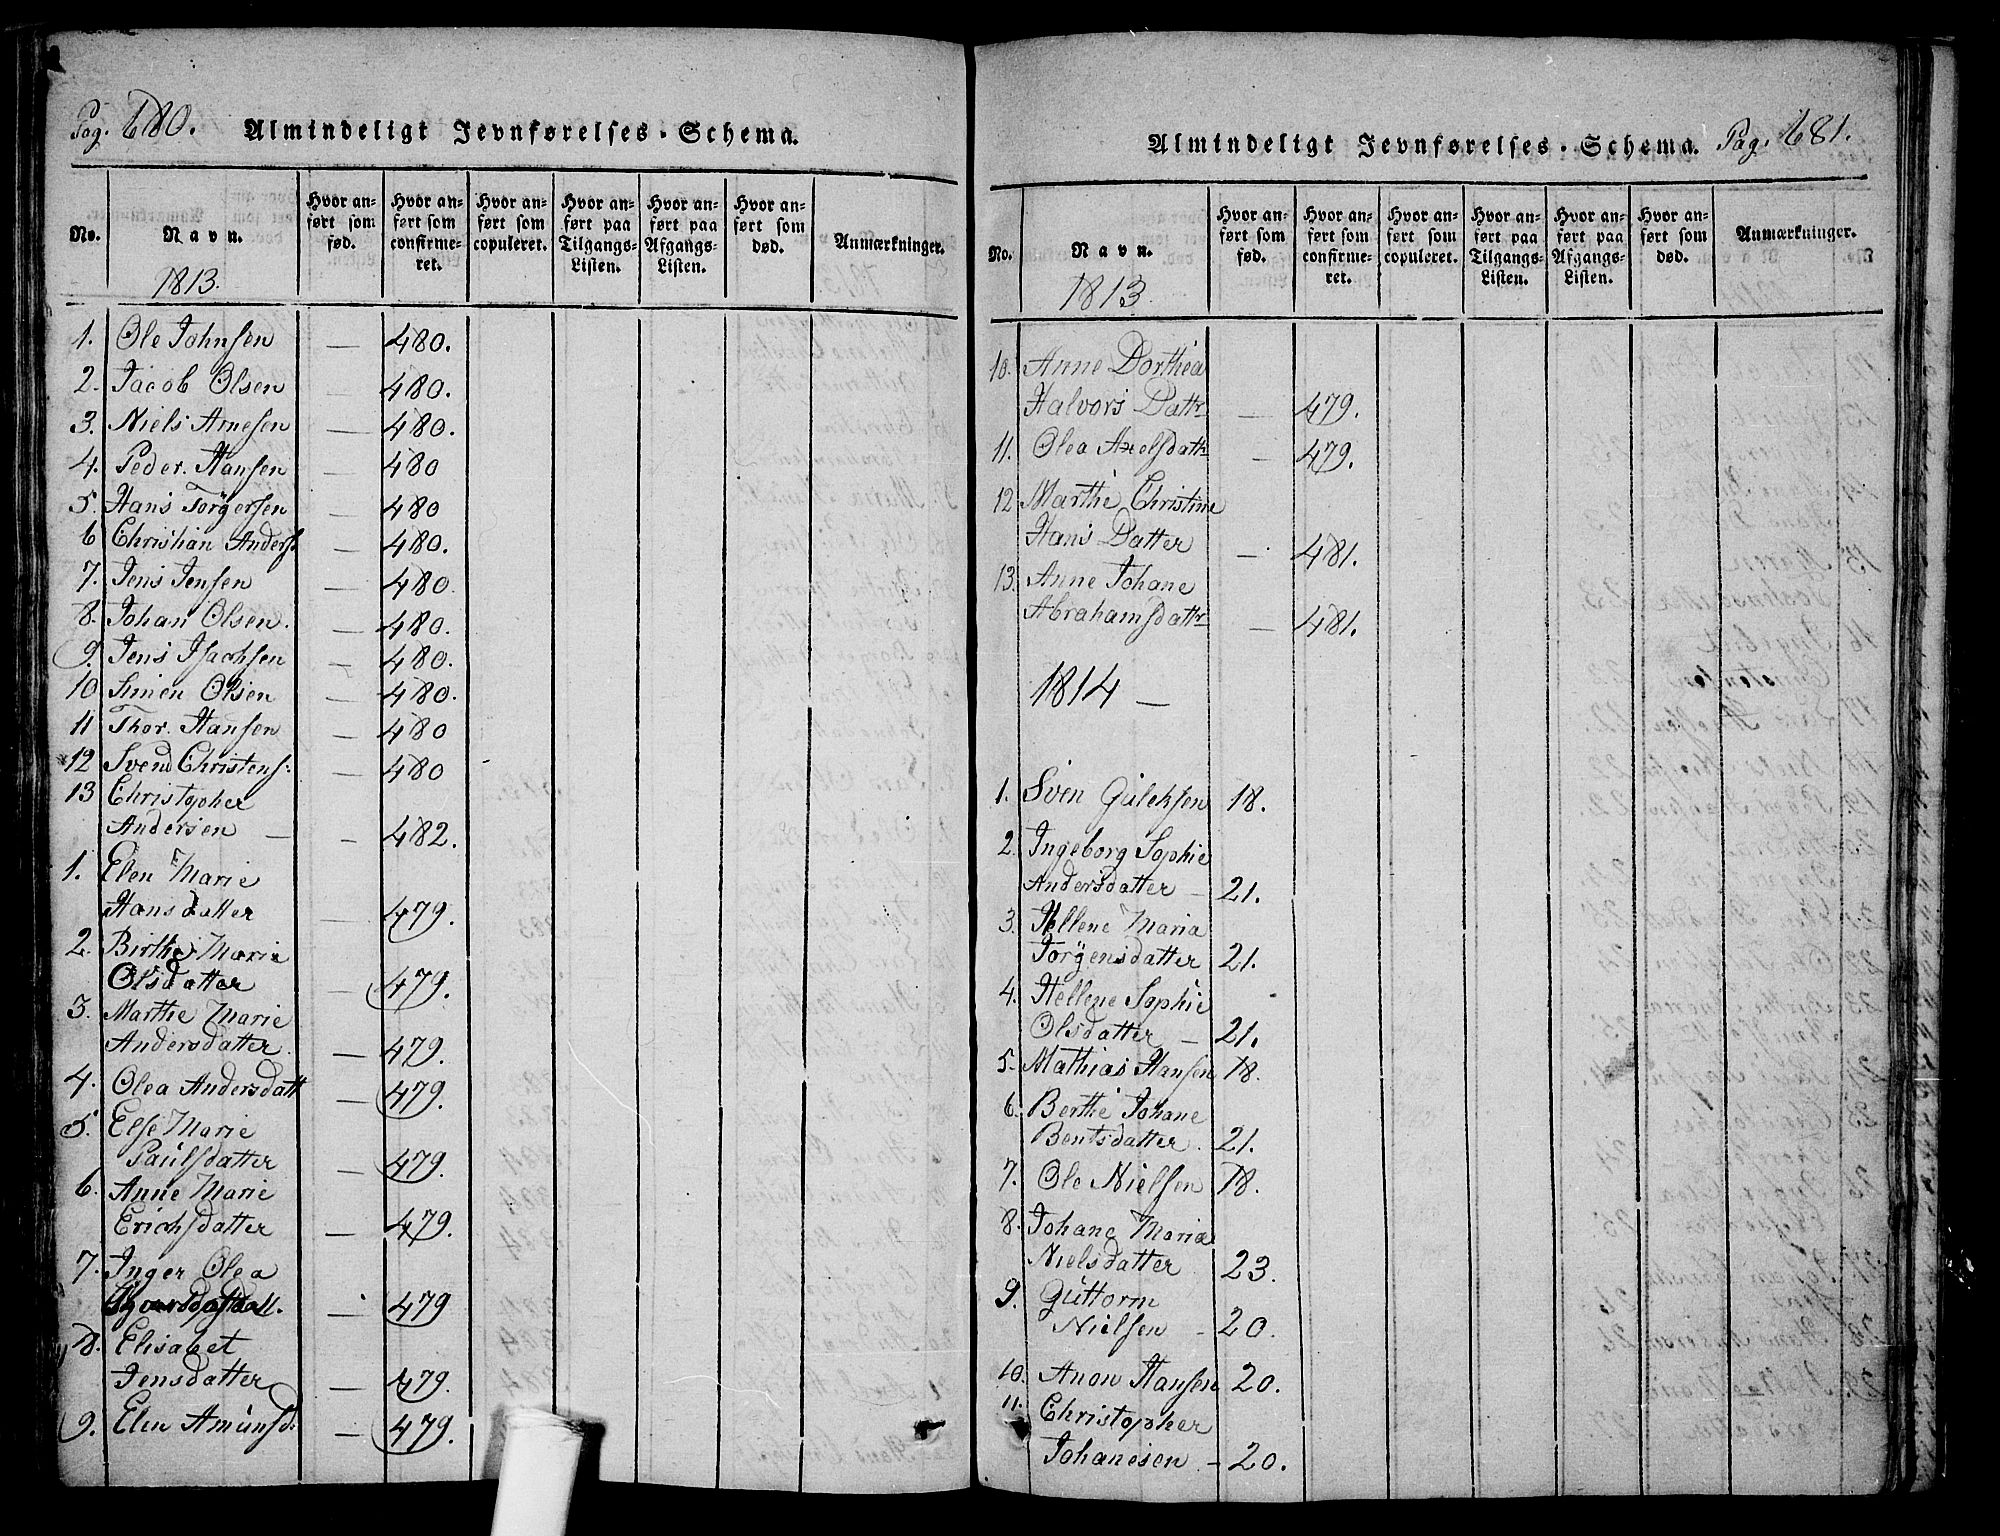 Pag. 680. Almindeligt Jevnførelses-Schema.
No. Navn. Hvor anført som fød. Hvor anført som confirmeret. Hvor anført som copuleret. Hvor anført paa Tilgangs-Listen. Hvor anført paa Afgangs-Listen. Hvor anført som død. Anmærkninger.
1813.
1. Ole Johnsen — 480.
2. Jacob Olsen — 480.
3. Niels Arnesen — 480.
4. Peder Hansen — 480
5. Hans Törgersen — 480
6 Christian Anders: — 480.
7. Jens Jensen — 480.
8. Johan Olsen. — 480.
9. Jens Isachsen — 480.
10. Simen Olsen — 480.
11 Thor. Hansen — 480
12 Svend Christens: — 480
13 Christopher
Andersen — - 482.
1. Elen Marie
Hansdatter — 479.
2. Birthe Marie
Olsdatter — 479.
3. Marthe Marie
Andersdatter. — 479.
4. Olea Andersdatt — 479.
5. Else Marie
Paulsdatter — 479.
6. Anne Marie
Erichsdatter — 479.
7. Inger Olea
- 479
8. Elisabet
Jensdatter — 479.
9. Elen Amunsd: — 479.
Almindeligt Jevnførelses-Schema. Pag. 681.
No. Navn. Hvor anført som fød. Hvor anført som confirmeret. Hvor anført som copuleret. Hvor anført paa Tilgangs-Listen. Hvor anført paa Afgangs-Listen. Hvor anført som død. Anmærkninger.
1813.
10. Anne Dorthea
Halvors Dattr — 479.
11. Olea Axelsdattr — 479.
12 Marthe Christine
Hans Datter — 481.
13. Anne Johane
Abrahamsdattr — 481.
1814 —
1. Sven Gulchsen 18.
2. Ingeborg Sophie
Andersdatter — 21.
3. Hellene Maria
Jörgensdatter 21.
4. Hellene Sophie
Olsdatter — 21.
5. Mathias Hansen 18.
6. Berthe Johane
Bentsdatter. 21.
7. Ole Nielsen 18.
8. Johane Maria
Nielsdatter 23.
9. Guttorm
Nielsen - 20.
10. Anon Hansen 20.
11. Christopher
Johanesen - 20.